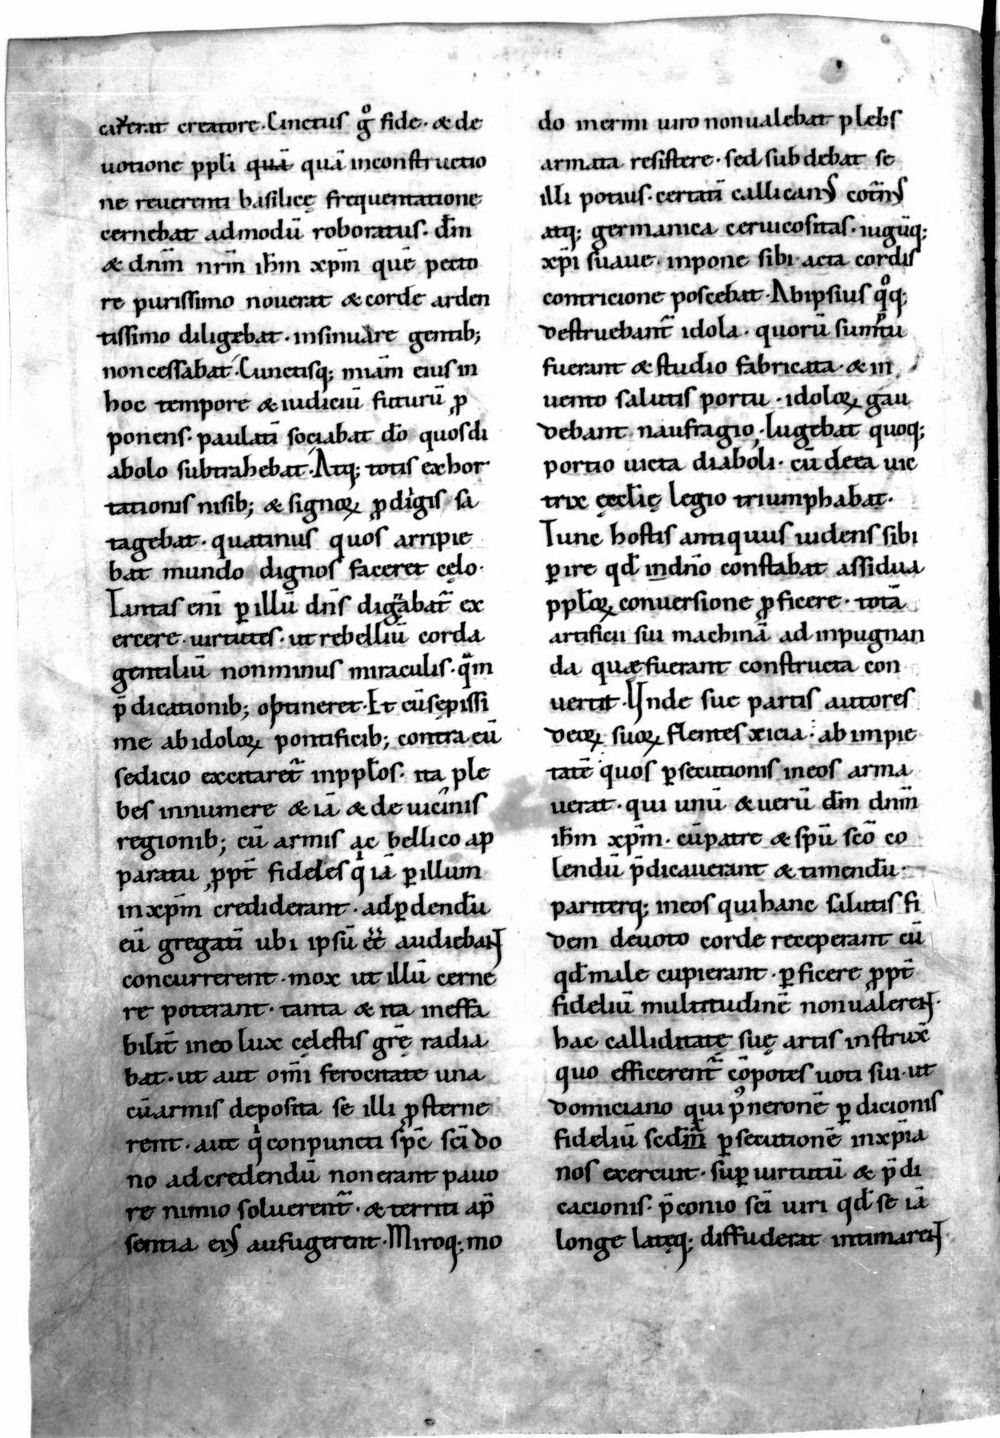 carerat creatore. Cunctus g̊ fide. & de
uotione ppli quā quā inconstructio
ne reuerenti basilicę frequentatione
cernebat admodū roboratus. dm̄
& dnm̄ nrm̄ ihm̄ xpm̄ quē pecto
re purissimo nouerat & corde arden
tissimo diligebat. insinuare gentib;
non cessabat. Cunctisq; miām eius in
hoc tempore & iudiciū futurū ꝓ
ponens. paulatī sociabat dō quos di
abolo subtrahebat. Atq; totis exhor
tationis nisib; & signoꝝ ꝓdigiis sa
tagebat. quatinus quos arripie
bat mundo dignos faceret cęlo.
Tantas enī ꝑ illū dns̄ dignabat̄ ex
ercere uirtutes. ut rebelliū corda
gentiliū non minus miraculis. qm̄
p̄dicationib; optineret. Et cū sępissi
me ab idoloꝝ pontificib; contra eū
sedicio excitaret̄ in ppl̄os. ita ple
bes innumere & iā & de uicinis
regionib; cū armis ac bellico ap
paratu ꝓpt̄ fideles qi iā ꝑ illum
in xpm̄ crediderant. ad ꝑdendū
eū gregatī ubi ipsū ēē audiebant
concurrerent. mox ut illū cerne
re poterant. tanta & ita ineffa
bilit̄ in eo lux cęlestis grē radia
bat. ut aut om̄i ferocitate una
cū armis deposita se illi ꝓsterne
rent. aut qi conpuncti sp̄c sc̄i do
no ad credendū non erant pauo
re nimio soluerent̄. & territi ap̄
sentia ei᷒ aufugerent. Miroq; mo
do inermi uiro non ualebat plebs
armata resistere. sed subdebat se
illi potius. certatī callicanꝰ cotn̄ꝰ
atq; germanica ceruicositas. iugūq;
xp̄i suaue. inpone sibi acta cordis
contricione poscebat. Ab ipsius q̊q;
destruebant̄ idola. quorū sumtu
fuerant & studio fabricata. & in
uento salutis portu. idoloꝝ gau
debant naufragio. lugebat quoq;
portio uicta diaboli. cū deta uic
trix ęcclię legio triumphabat.
Tunc hostis antiquus uidens sibi
ꝑire qd̄ in dnō constabat assidua
ppl̄oꝝ conuersione ꝓficere. totā
artificii sui machinā ad inpugnan
da quę fuerant constructa con
uertit. Unde suę partis autores
deoꝝ suoꝝ flentes xicia. ab impie
tatē quos ꝑsecutionis in eos arma
uerat. qui unū & uerū dm̄ dnm̄
ihm̄ xpm̄. cū patre & spū scō co
lendū p̄dicauerant & timendū.
pariterq; in eos qui hanc salutis fi
dem deuoto corde receperant cū
qd̄ male cupierant. ꝑficere ꝓpt̄
fideliū multitudinē non ualerent.
hac calliditatę suę artis instrux̄
quo efficerent̄ cōpotes uoti sui. ut
domiciano qui p᷒ neronē ꝑdicionis
fideliū scdm̄ ꝑsecutionē in xp̄ia
nos exercuit. suꝑ uirtutū & p̄di
cacionis. p̄conio sc̄i uiri qd̄ se iā
longe lateq; diffuderat intimarent.